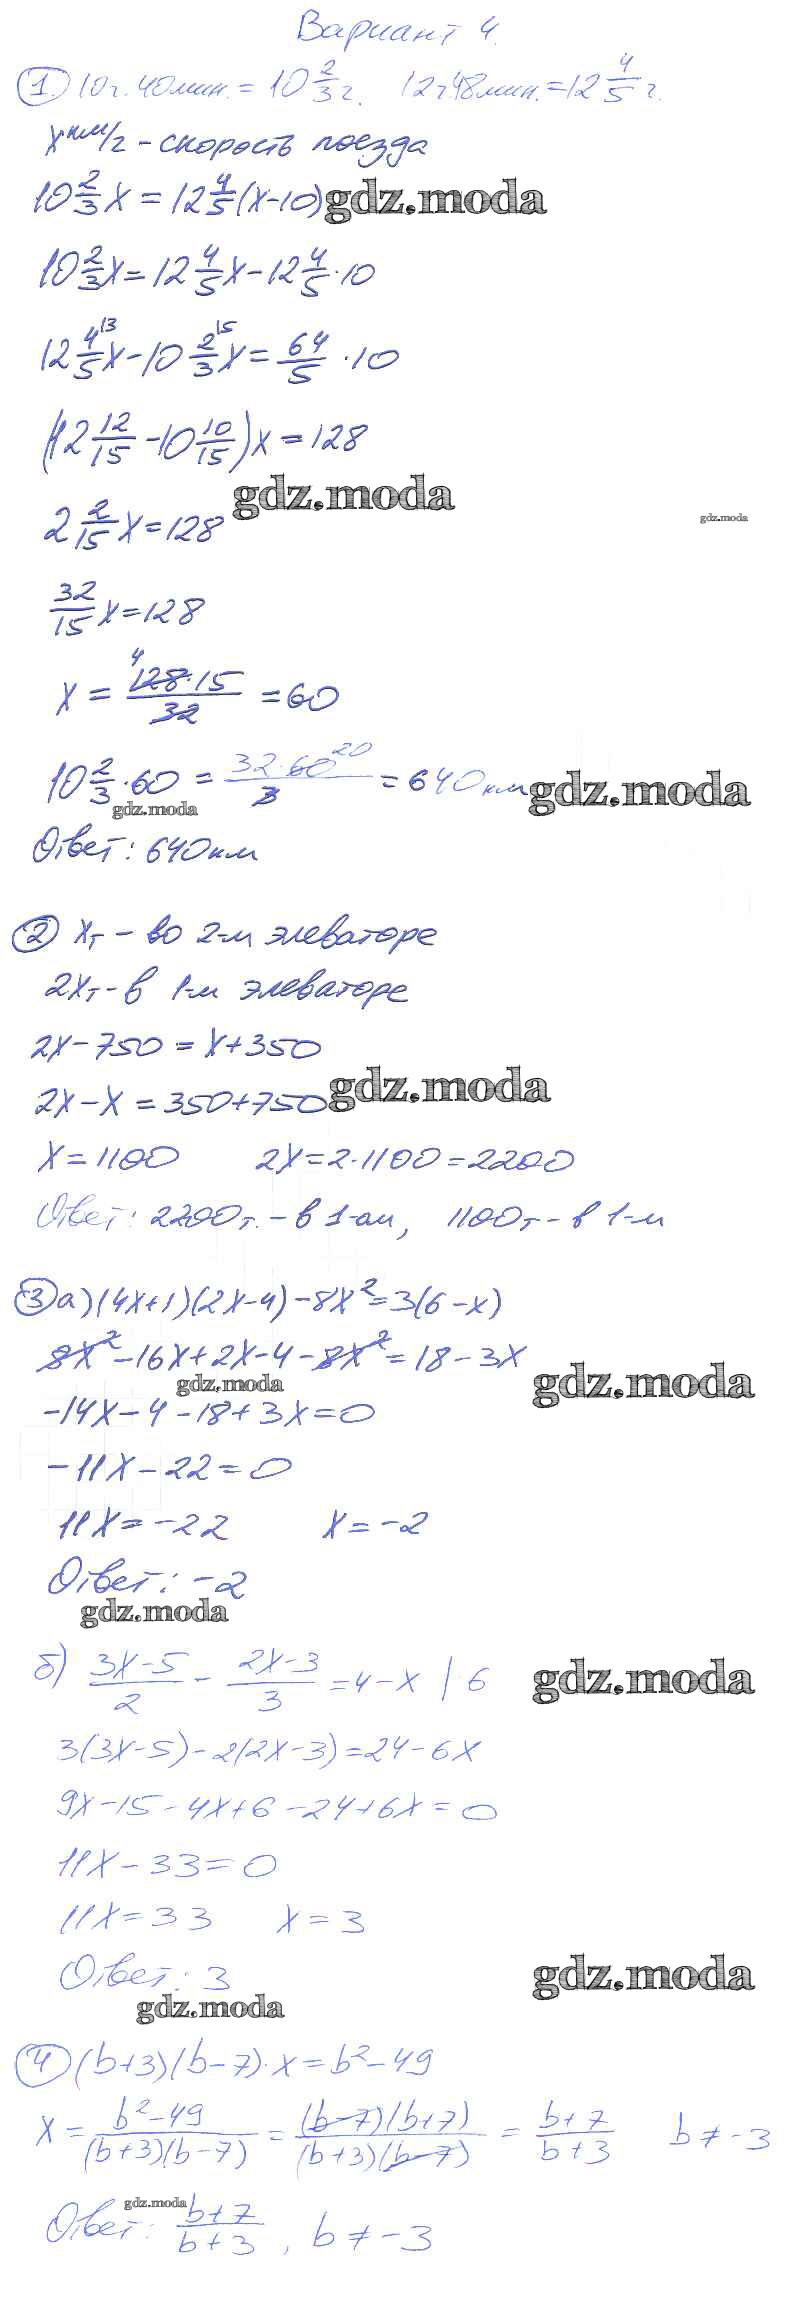 Вариант 4.
1. 10ч. 40мин. = 10 2/3 ч. 12ч48мин. = 12 4/5 ч.
x км/ч - скорость поезда
10 2/3 x = 12 4/5 (x-10) gdz.moda
10 2/3 x = 12 4/5 x - 12 4/5 · 10
12 4/5 \3 x - 10 2/3 \5 x = 64/5 · 10
(12 12/15 - 10 10/15) x = 128
gdz.moda
gdz.moda
2 2/15 x = 128
32/15 x = 128
x = 4 128·15/32 = 60
10 2/3 · 60 = 32·60 20/3 = 640 км gdz.moda
gdz.moda
Ответ: 640 км
2 xт - во 2-м элеваторе
2xт - в 1-м элеваторе
2x - 750 = x + 350
2x - x = 350 + 750 gdz.moda
x = 1100 2x = 2·1100 = 2200
Ответ: 2200т. - в 1-ом, 1100т - в 1-м
3 а) (4x+1)(2x-4) - 8x² = 3(6-x)
8x² - 16x + 2x - 4 - 8x² = 18 - 3x
gdz.moda gdz.moda
-14x - 4 - 18 + 3x = 0
-11x - 22 = 0
11x = -22 x = -2
Ответ: -2
gdz.moda
б) 3x-5/2 - 2x-3/3 = 4 - x | 6 gdz.moda
3(3x-5) - 2(2x-3) = 24 - 6x
9x - 15 - 4x + 6 - 24 + 6x = 0
11x - 33 = 0
11x = 33 x = 3
Ответ: 3 gdz.moda
gdz.moda
4 (b+3)(b-7)·x = b² - 49
x = b²-49/(b+3)(b-7) = (b-7)(b+7)/(b+3)(b-7) = b+7/b+3 b ≠ -3
gdz.moda
Ответ: b+7/b+3, b ≠ -3